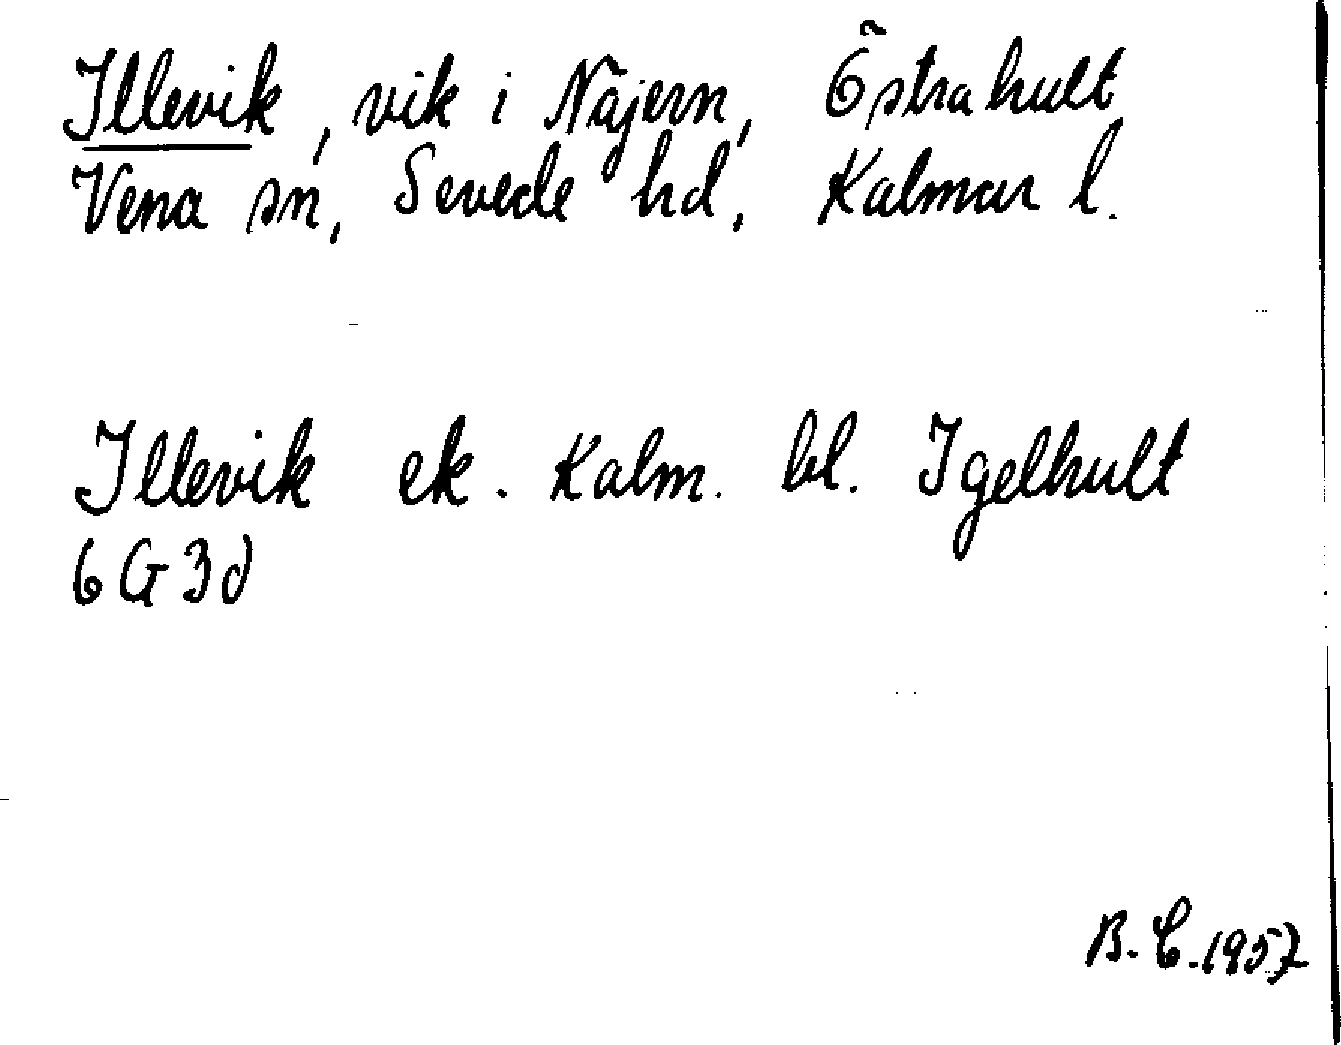 Illevik, vik i Näjern, Östrahult
Vena sn, Sevede hd, Kalmar l.
Illevik ek. Kalm. bl. Igelhult
6G3d
B.C.1957